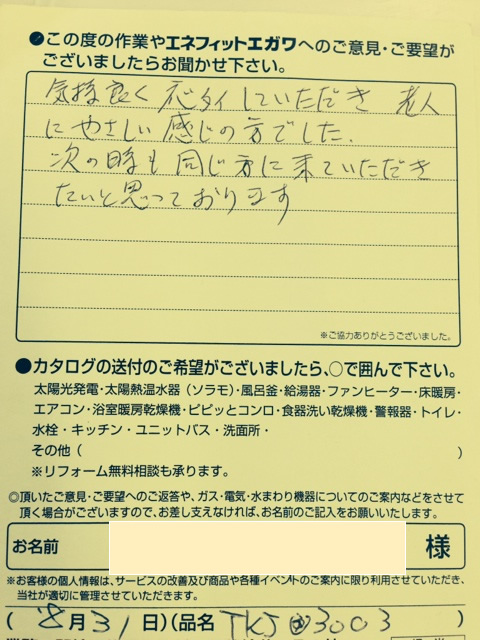 ●この度の作業やエネフィットエガワへのご意見・ご要望が
ございましたらお聞かせ下さい。
気持良く応タイしていただき 老人
にやさしい感じの方でした.
次の時も同じ方に来ていただき
たいと思っております
※ご協力ありがとうございました。
●カタログの送付のご希望がございましたら、○で囲んで下さい。
太陽光発電・太陽熱温水器（ソラモ）・風呂釜・給湯器・ファンヒーター・床暖房・
エアコン・浴室暖房乾燥機・ピピッとコンロ・食器洗い乾燥機・警報器・トイレ・
水栓・キッチン・ユニットバス・洗面所・
その他（ ）
※リフォーム無料相談も承ります。
◎頂いたご意見・ご要望へのご返答や、ガス・電気・水まわり機器についてのご案内などをさせて
頂く場合がございますので、お差し支えなければ、お名前のご記入をお願いいたします。
お名前 様
※お客様の個人情報は、サービスの改善及び商品や各種イベントのご案内に限り利用させていただき、
当社が適切に管理させていただきます。
（8月31日）（品名 3003 ）